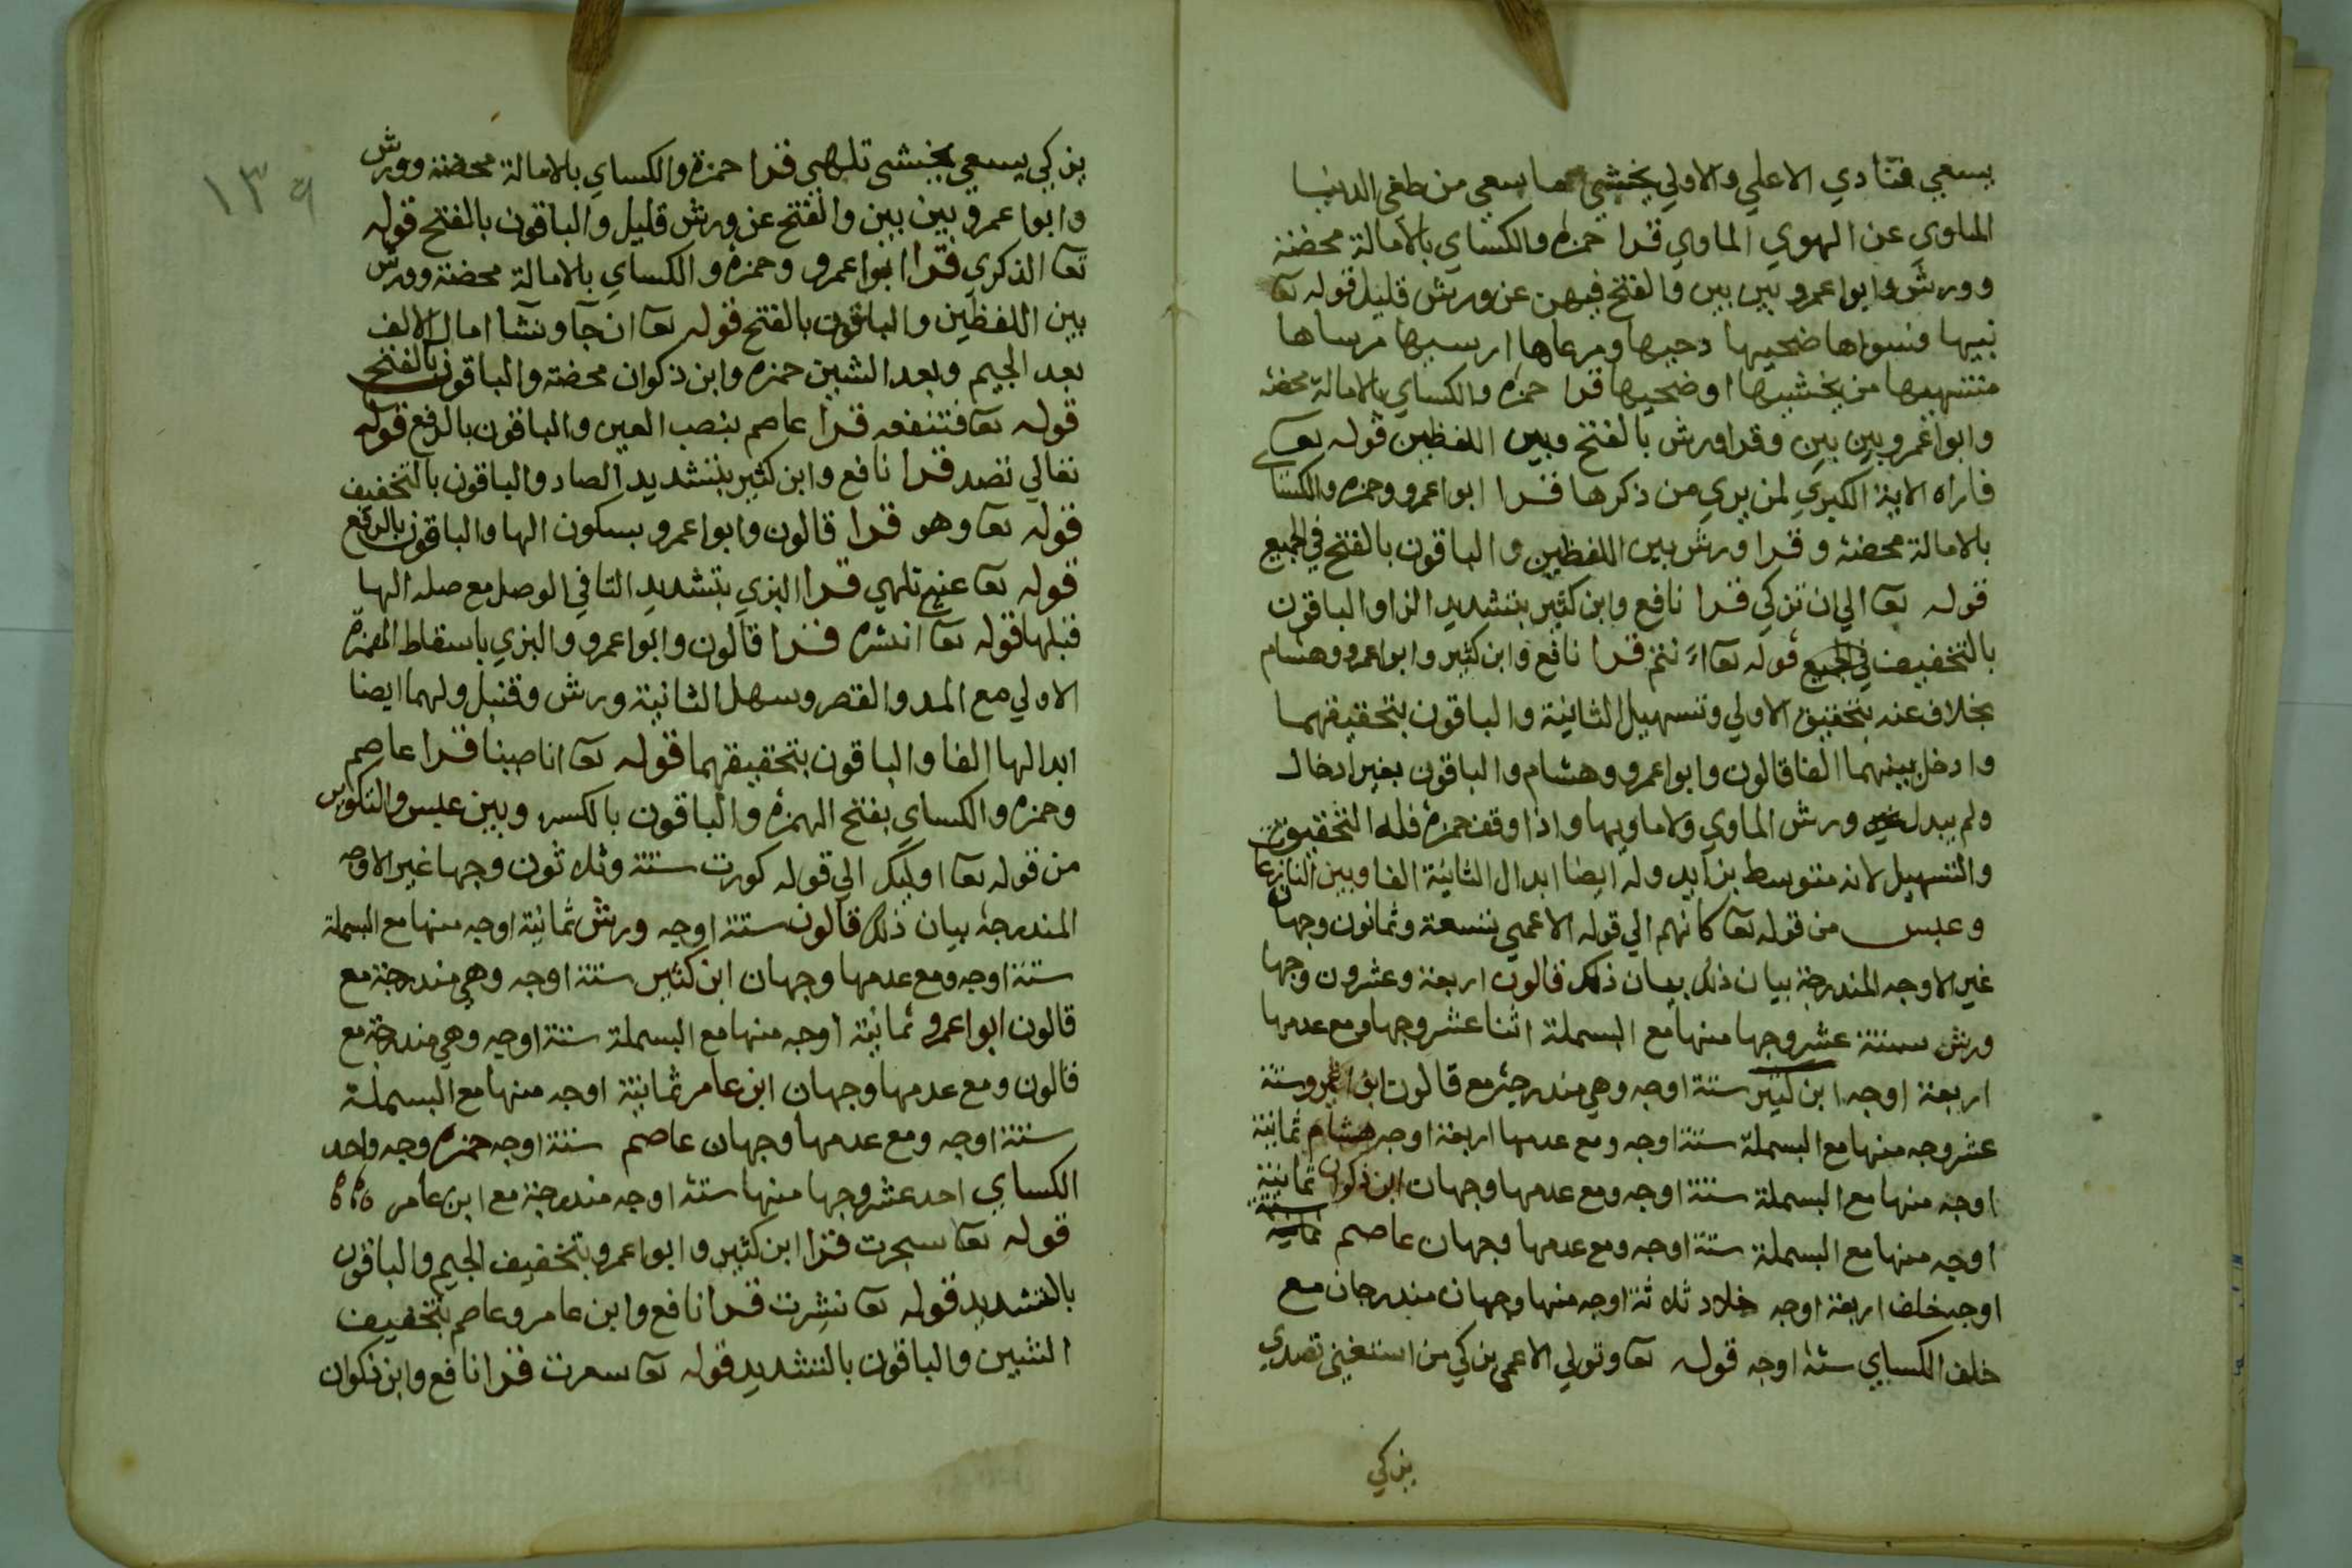 يسعي فنادي الاعلي والاولي يخشي ما سعي من طغي الدنيا
الماوي عن الهوي الماوي قرا حمزة والكساي بالامالة محضة
وورش وابوا عمرو بين بين والفتح فيهن عن ورش قليل قوله تعا
بنيها فسواها ضحيها دحيها ومرعاها ارسيها مرساها
منتهيها من يخشيها او ضحيها قرا حمزه والكساي بالامالة محضه
وابوا عمرو بين بين وقرا ورش بالفتح وبين اللفظين قوله تعا
فاراه الاية الكبري لمن يري من ذكرها قرا ابوا عمرو وحمزه والكسا
بالامالة محضة وقرا ورش بين اللفظين والباقون بالفتح في الجميع
قوله تعا الي ان تزكي قرا نافع وابن كثير بتشديد الزا والباقون
بالتخفيف في الجميع قوله تعا اءنتم قرا نافع وابن كثير وابوا عمرو وهشام
بخلاف عنه بتحقيق الاولي وتسهيل الثانية والباقون بتحقيقهما
وادخل بينهما الفا قالون وابوا عمرو وهشام والباقون بغير ادخال
ولم يبدل ورش الماوي ولا ماويها واذا وقف حمزة فله التحقيق
والتسهيل لانه متوسط بزايد وله ايضا ابدال الثانية الفا وبين النازعا
وعبس من قوله تعا كانهم الي قوله الاعمي تسعة وثمانون وجها
غير الاوجه المندرجة بيان ذلك بيان ذلك قالون اربعة وعشرون وجها
ورش ستة عشر وجها منها مع البسملة اثنا عشر وجها ومع عدمها
اربعة اوجه ابن كثير ستة اوجه وهي مندرجة مع قالون ابوا عمرو ستة
عشر وجه منها مع البسملة ستة اوجه ومع عدمها اربعة اوجه هشام ثمانية
اوجه منها مع البسملة ستة اوجه ومع عدمها وجهان ابن ذكوان ثمانية
اوجه منها مع البسملة ستة اوجه ومع عدمها وجهان عاصم ثمانية ستة
اوجه خلف اربعة اوجه خلاد ثلاثة اوجه منها وجهان مندرجان مع
خلف الكساي ستة اوجه قوله تعا وتولي الاعمي يزكي من استغني تصدي
يزكي
١٣٩
يزكي يسعي يخشي تلهي قرا حمزة والكساي بالامالة محضة وورش
وابوا عمرو بين بين والفتح عن ورش قليل والباقون بالفتح قوله
تعا الذكري قرا ابوا عمرو وحمزه والكساي بالامالة محضة وورش
بين اللفظين والباقون بالفتح قوله تعا ان جآ وشآ امال الالف
بعد الجيم وبعد الشين حمزه وابن ذكوان محضة والباقون بالفتح
قوله تعا فتنفعه قرا عاصم بنصب العين والباقون بالرفع قوله
تعالي تصد قرا نافع وابن كثير بتشديد الصاد والباقون بالتخفيف
قوله تعا وهو قرا قالون وابوا عمرو بسكون الها والباقون بالرفع
قوله تعا عنه تلهي قرا البزي بتشديد التا في الوصل مع صله الها
قبلها قوله تعا انشره قرا قالون وابوا عمرو والبزي باسقاط الهمزة
الاولي مع المد والقصر وسهل الثانية ورش وقنبل ولهما ايضا
ابدالها الفا والباقون بتحقيقهما قوله تعا انا صببنا قرا عاصم
وحمزه والكساي بفتح الهمزه والباقون بالكسر وبين عبس والتكوير
من قوله تعا اوليك الي قوله كورت ستة وثلاثون وجها غير الاوجه
المندرجة بيان ذلك قالون ستة اوجه ورش ثمانية اوجه منها مع البسملة
ستة اوجه ومع عدمها وجهان ابن كثير ستة اوجه وهي مندرجة مع
قالون ابوا عمرو ثمانية اوجه منها مع البسملة ستة اوجه وهي مندرجة مع
قالون ومع عدمها وجهان ابن عامر ثمانية اوجه منها مع البسملة
ستة اوجه ومع عدمها وجهان عاصم ستة اوجه حمزه وجه واحد
الكساي احد عشر وجها منها ستة اوجه مندرجة مع ابن عامر
قوله تعا سجرت قرا ابن كثير وابوا عمرو بتخفيف الجيم والباقون
بالتشديد قوله تعا نشرت قرا نافع وابن عامر وعاصم بتخفيف
الشين والباقون بالتشديد قوله تعا سعرت قرا نافع وابن ذكوان